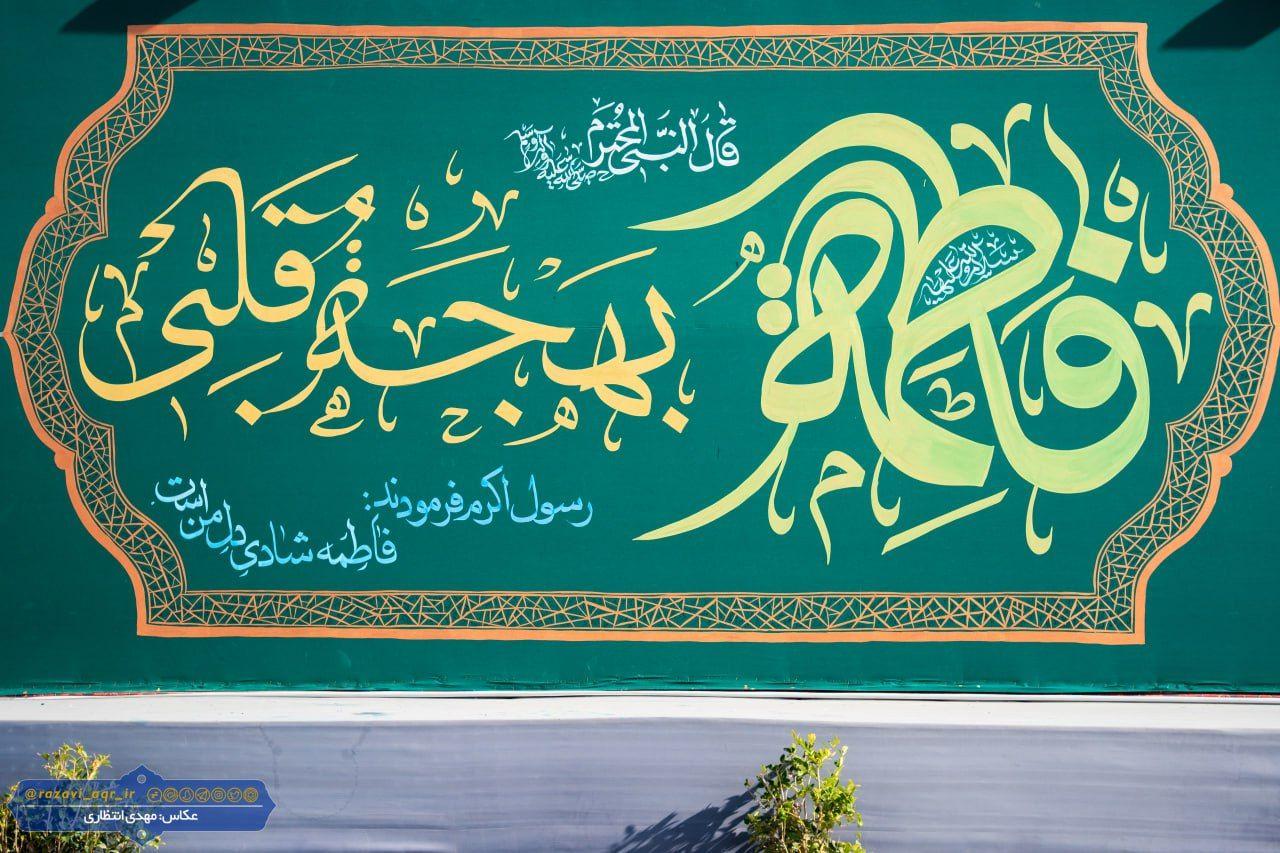 قَالَ النَّبيُّ المُحْتَرَم صلی الله علیه و آله و سلم
فَاطِمَةُ بَهْجَةُ قَلْبِي
سلام الله علیها
رسول اکرم فرمودند:
فاطِمه شادیِ دِلِ من است.
@razavi_aqr_ir
عکاس: مهدی انتظاری